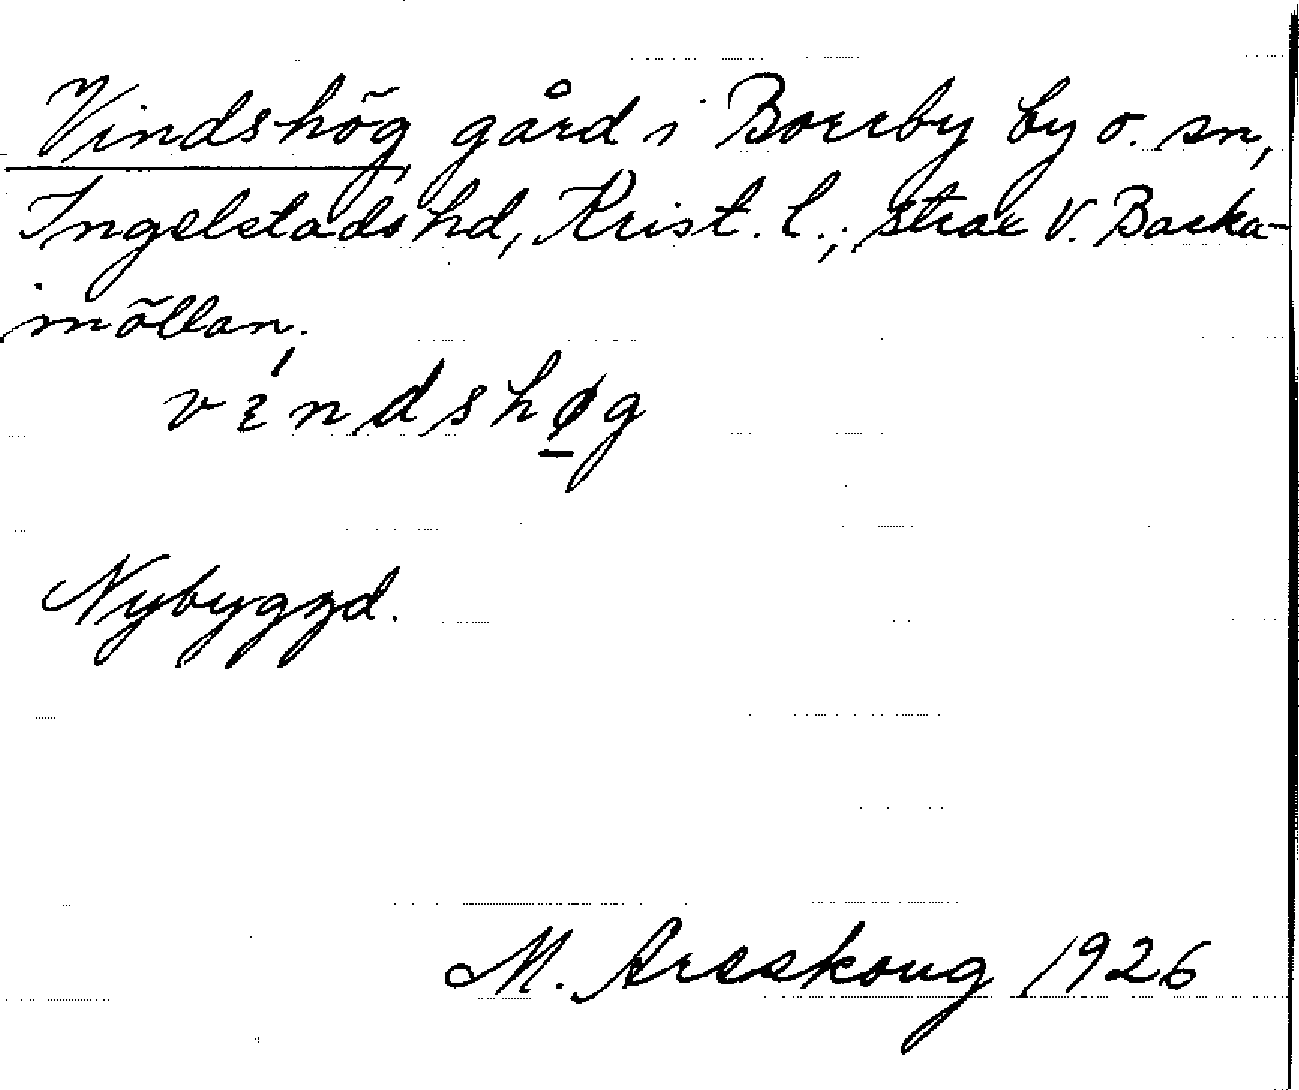 Vindshög gård i Borrby by o. sn,
Ingelstads hd, Krist. l.; strax V. Backa-
möllan.
vɛ́ndshø̱g
Nybyggd.
M. Areskoug 1926